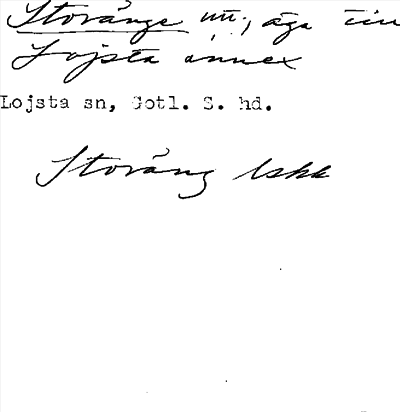 Storänge ; äga
Lojsta annex
Lojsta sn, Gotl. S. hd.
Storäng Iskk